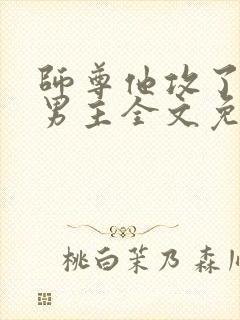 师尊他攻了
男主全文免
桃白茉乃 森川